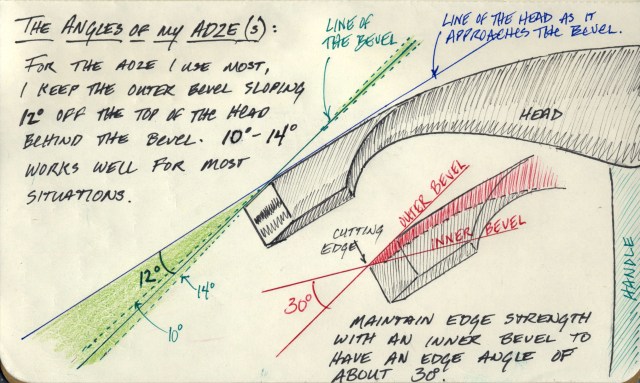 THE ANGLES OF MY ADZE(S):
FOR THE ADZE I USE MOST,
I KEEP THE OUTER BEVEL SLOPING
12° OFF THE TOP OF THE HEAD
BEHIND THE BEVEL. 10°-14°
WORKS WELL FOR MOST
SITUATIONS.
LINE OF
THE BEVEL
LINE OF THE HEAD AS IT
APPROACHES THE BEVEL.
HEAD
OUTER BEVEL
INNER BEVEL
CUTTING
EDGE
HANDLE
12°
14°
10°
30°
MAINTAIN EDGE STRENGTH
WITH AN INNER BEVEL TO
HAVE AN EDGE ANGLE OF
ABOUT 30°.